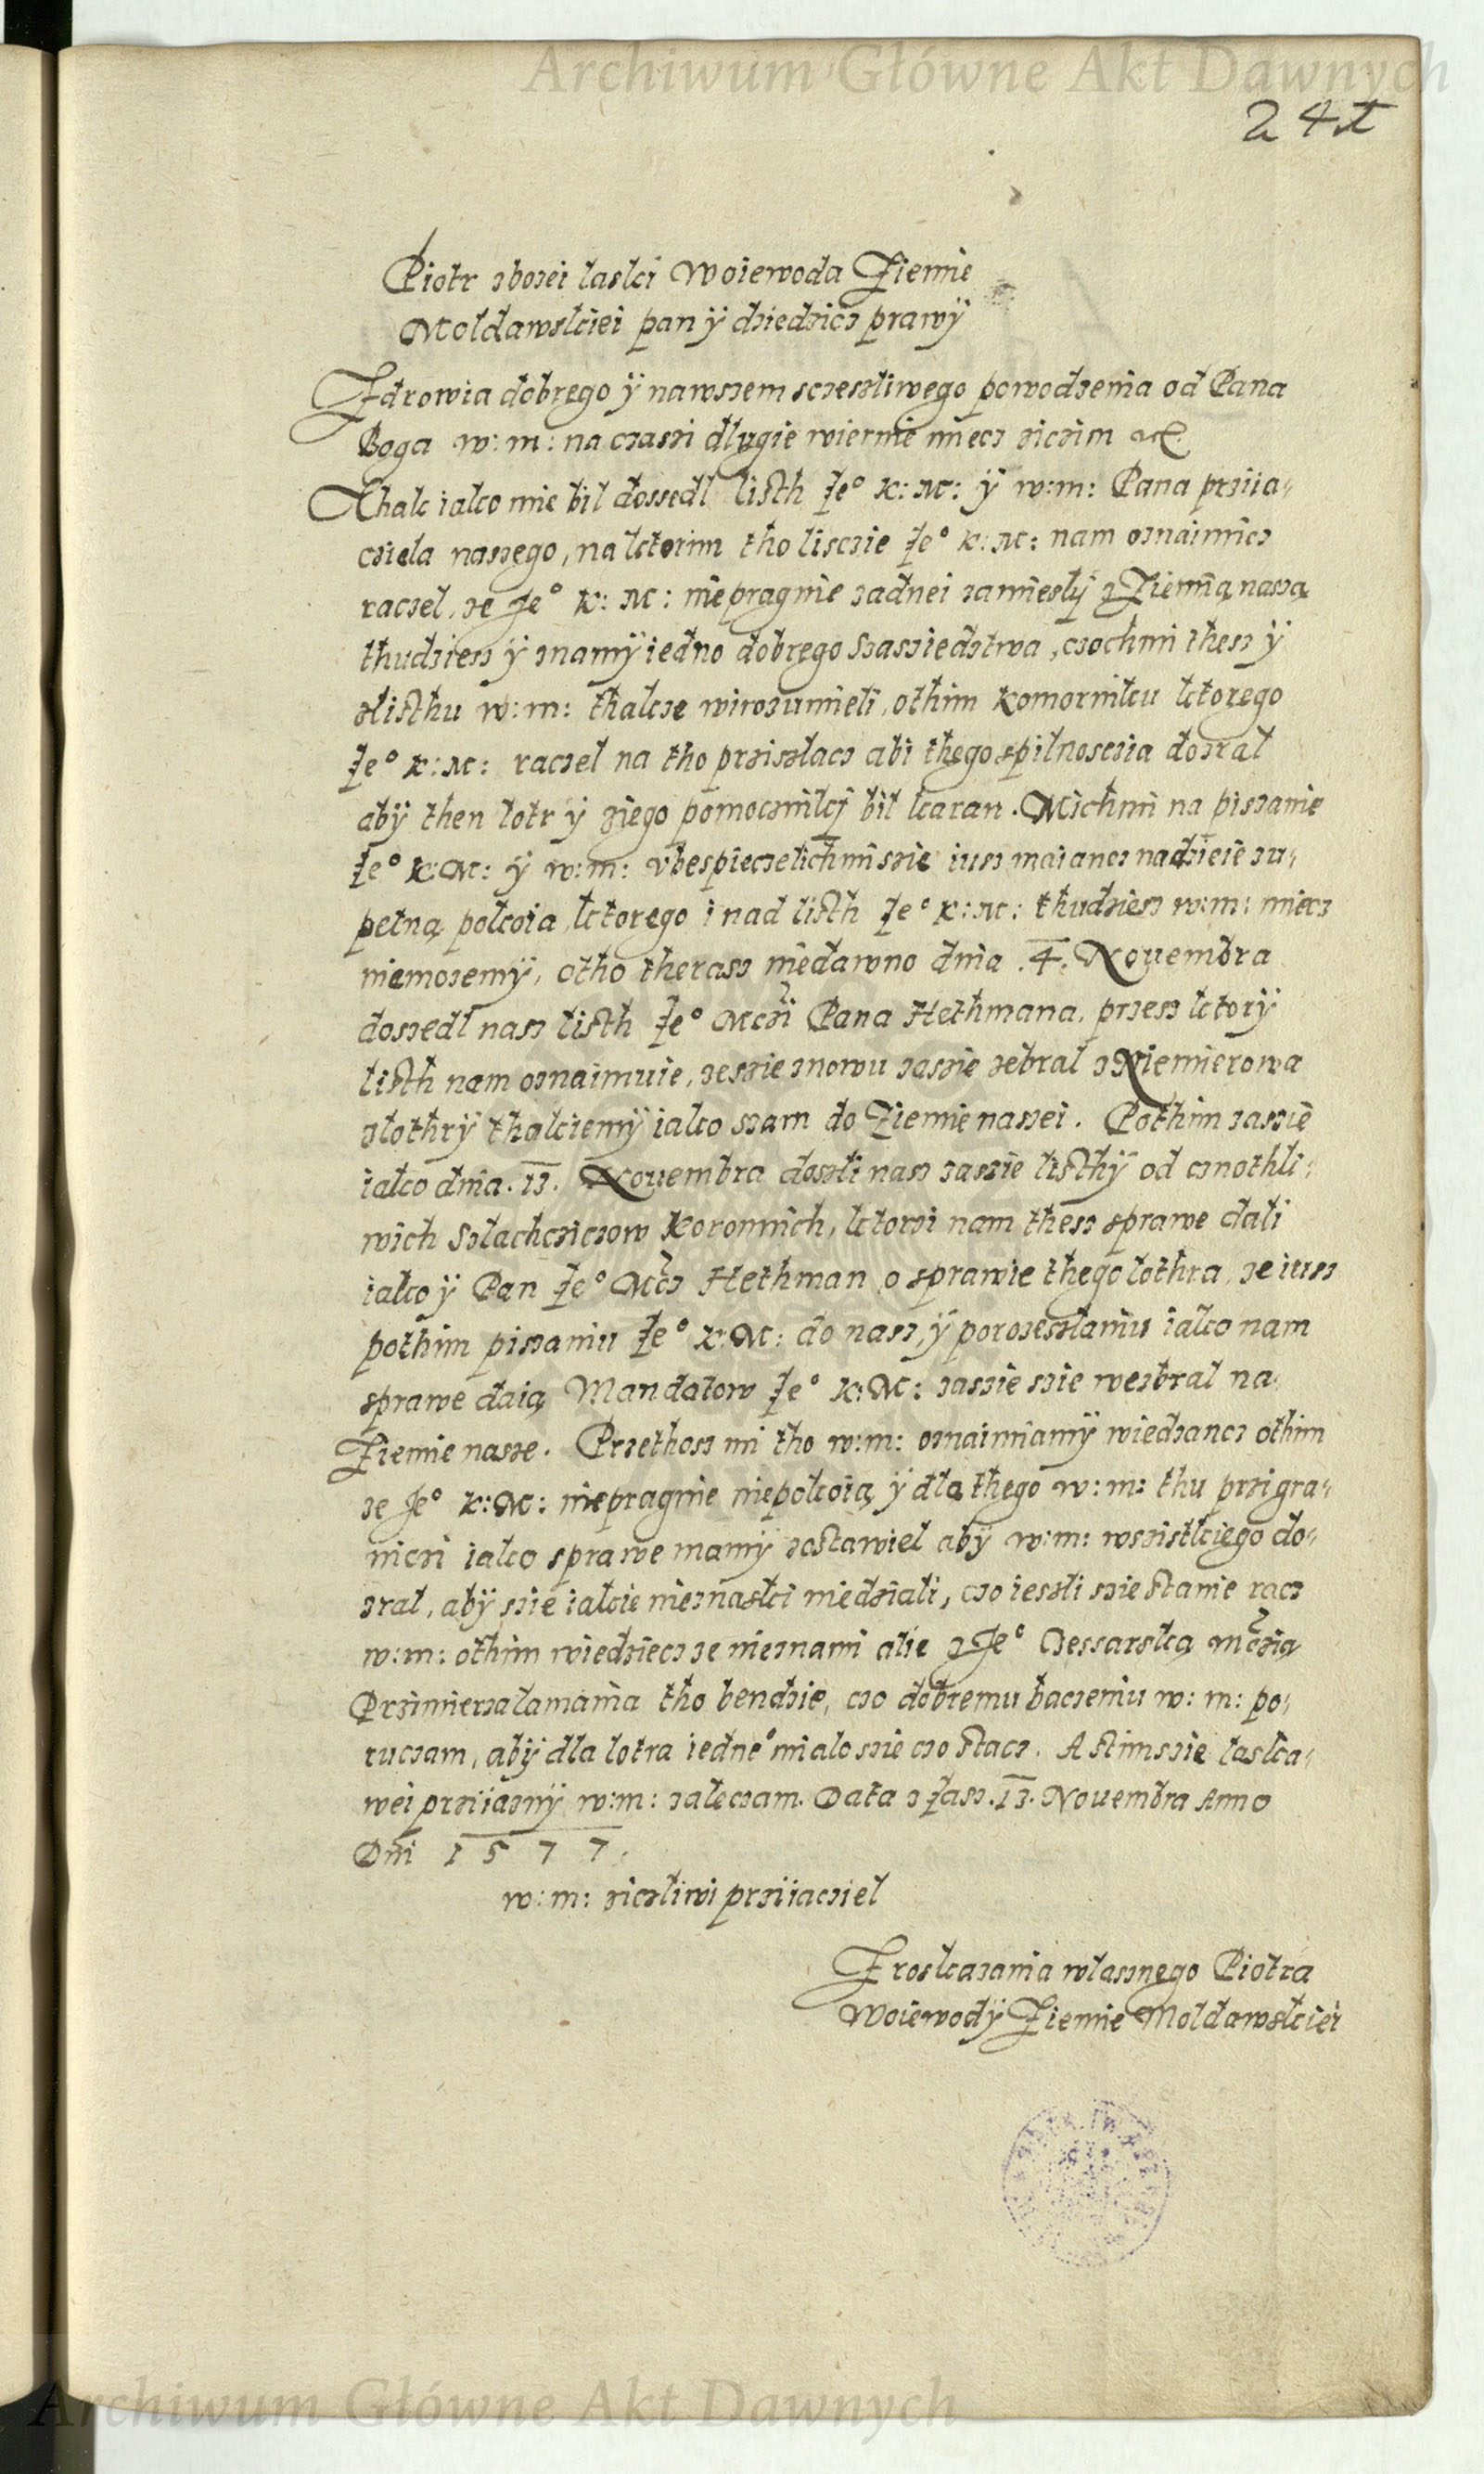 Archiwum Główne Akt Dawnych
241
Piotr zbozei laski Woiewoda Ziemie
Moldawskiei pan ÿ dziedzicz prawÿ
Zdrowia dobrego ÿ nawszem sczeszliwego powodzenia od Pana
Boga w: m: na czaszi dlugie wiernie miecz ziczim etc.
Thak iako mie bil dossedl listh Je° K: M: ÿ w:m: Pana prziia-
cziela nassego, na ktorim tho lisczie Je° K: M: nam oznaimicz
raczel, ze Je° K: M: niepragnie zadnei zamieslÿ z Ziemią naszą
thudziesz ÿ znamÿ iedno dobrego Szassiedztwa, czochmi thesz ÿ
zlisthu w: m: thakze wirozumieli, othim Komorniku ktorego
Je° K: M: raczel na tho prziszlacz abi thego spilnosczia dozral
abÿ then lotr ÿ ziego pomocznikÿ bil karan. Michmi na piszanie
Je° K: M: ÿ w: m: vbespieczelichmi szie iusz maiancz nadzieie zu-
pelną pokoia, ktorego i nad listh Je° K: M: thudziesz w: m: miecz
niemozemÿ, otho therasz niedawno dnia .4. Nouembra
doszedl nasz listh Je° Mczi Pana Hethmana, przesz ktorÿ
listh nam oznaimuie, zeszie znowu zaszie zebral z Niemierowa
zlothrÿ thakiemÿ iako szam do Ziemie naszei. Pothim zaszie
iako dnia .13. Nouembra doszli nasz zaszie listhÿ od cznothli-
wich Szlachcziczow Koronnich, ktorzi nam thesz sprawe dali
iako ÿ Pan Je° Mcz Hethman o sprawie thego lothra, ze iusz
pothim piszaniu Je° K: M: do nasz, ÿ porozeszlaniu iako nam
sprawe daią Mandatow Je° K: M: zaszie szie wezbral na
Ziemie nasze. Przethosz mi tho w: m: oznaimiamÿ wiedzancz othim
ze Je° K: M: niepragnie niepokoią ÿ dla thego w: m: thu przigra-
niczi iako sprawe mamÿ zostawiel abÿ w: m: wszistkiego do-
zral, abÿ szie iakie nieznaski niedziali, czo ieszli szie stanie racz
w: m: othim wiedziecz ze nieznami alie z Je° Cessarską mczią
Przimierzalamania tho bendzie, czo dobremu baczeniu w: m: po-
ruczam, abÿ dla lotra iedne° mialo szie czo stacz. A stimszie laska-
wei prziiaznÿ w: m: zaleczam. Data z Jasz .13. Nouembra Anno
Dni 1577.
w: m: ziczliwi prziiacziel
Zroskazania wlasznego Piotra
Woiewodÿ Ziemie Moldawskiei
Archiwum Główne Akt Dawnych